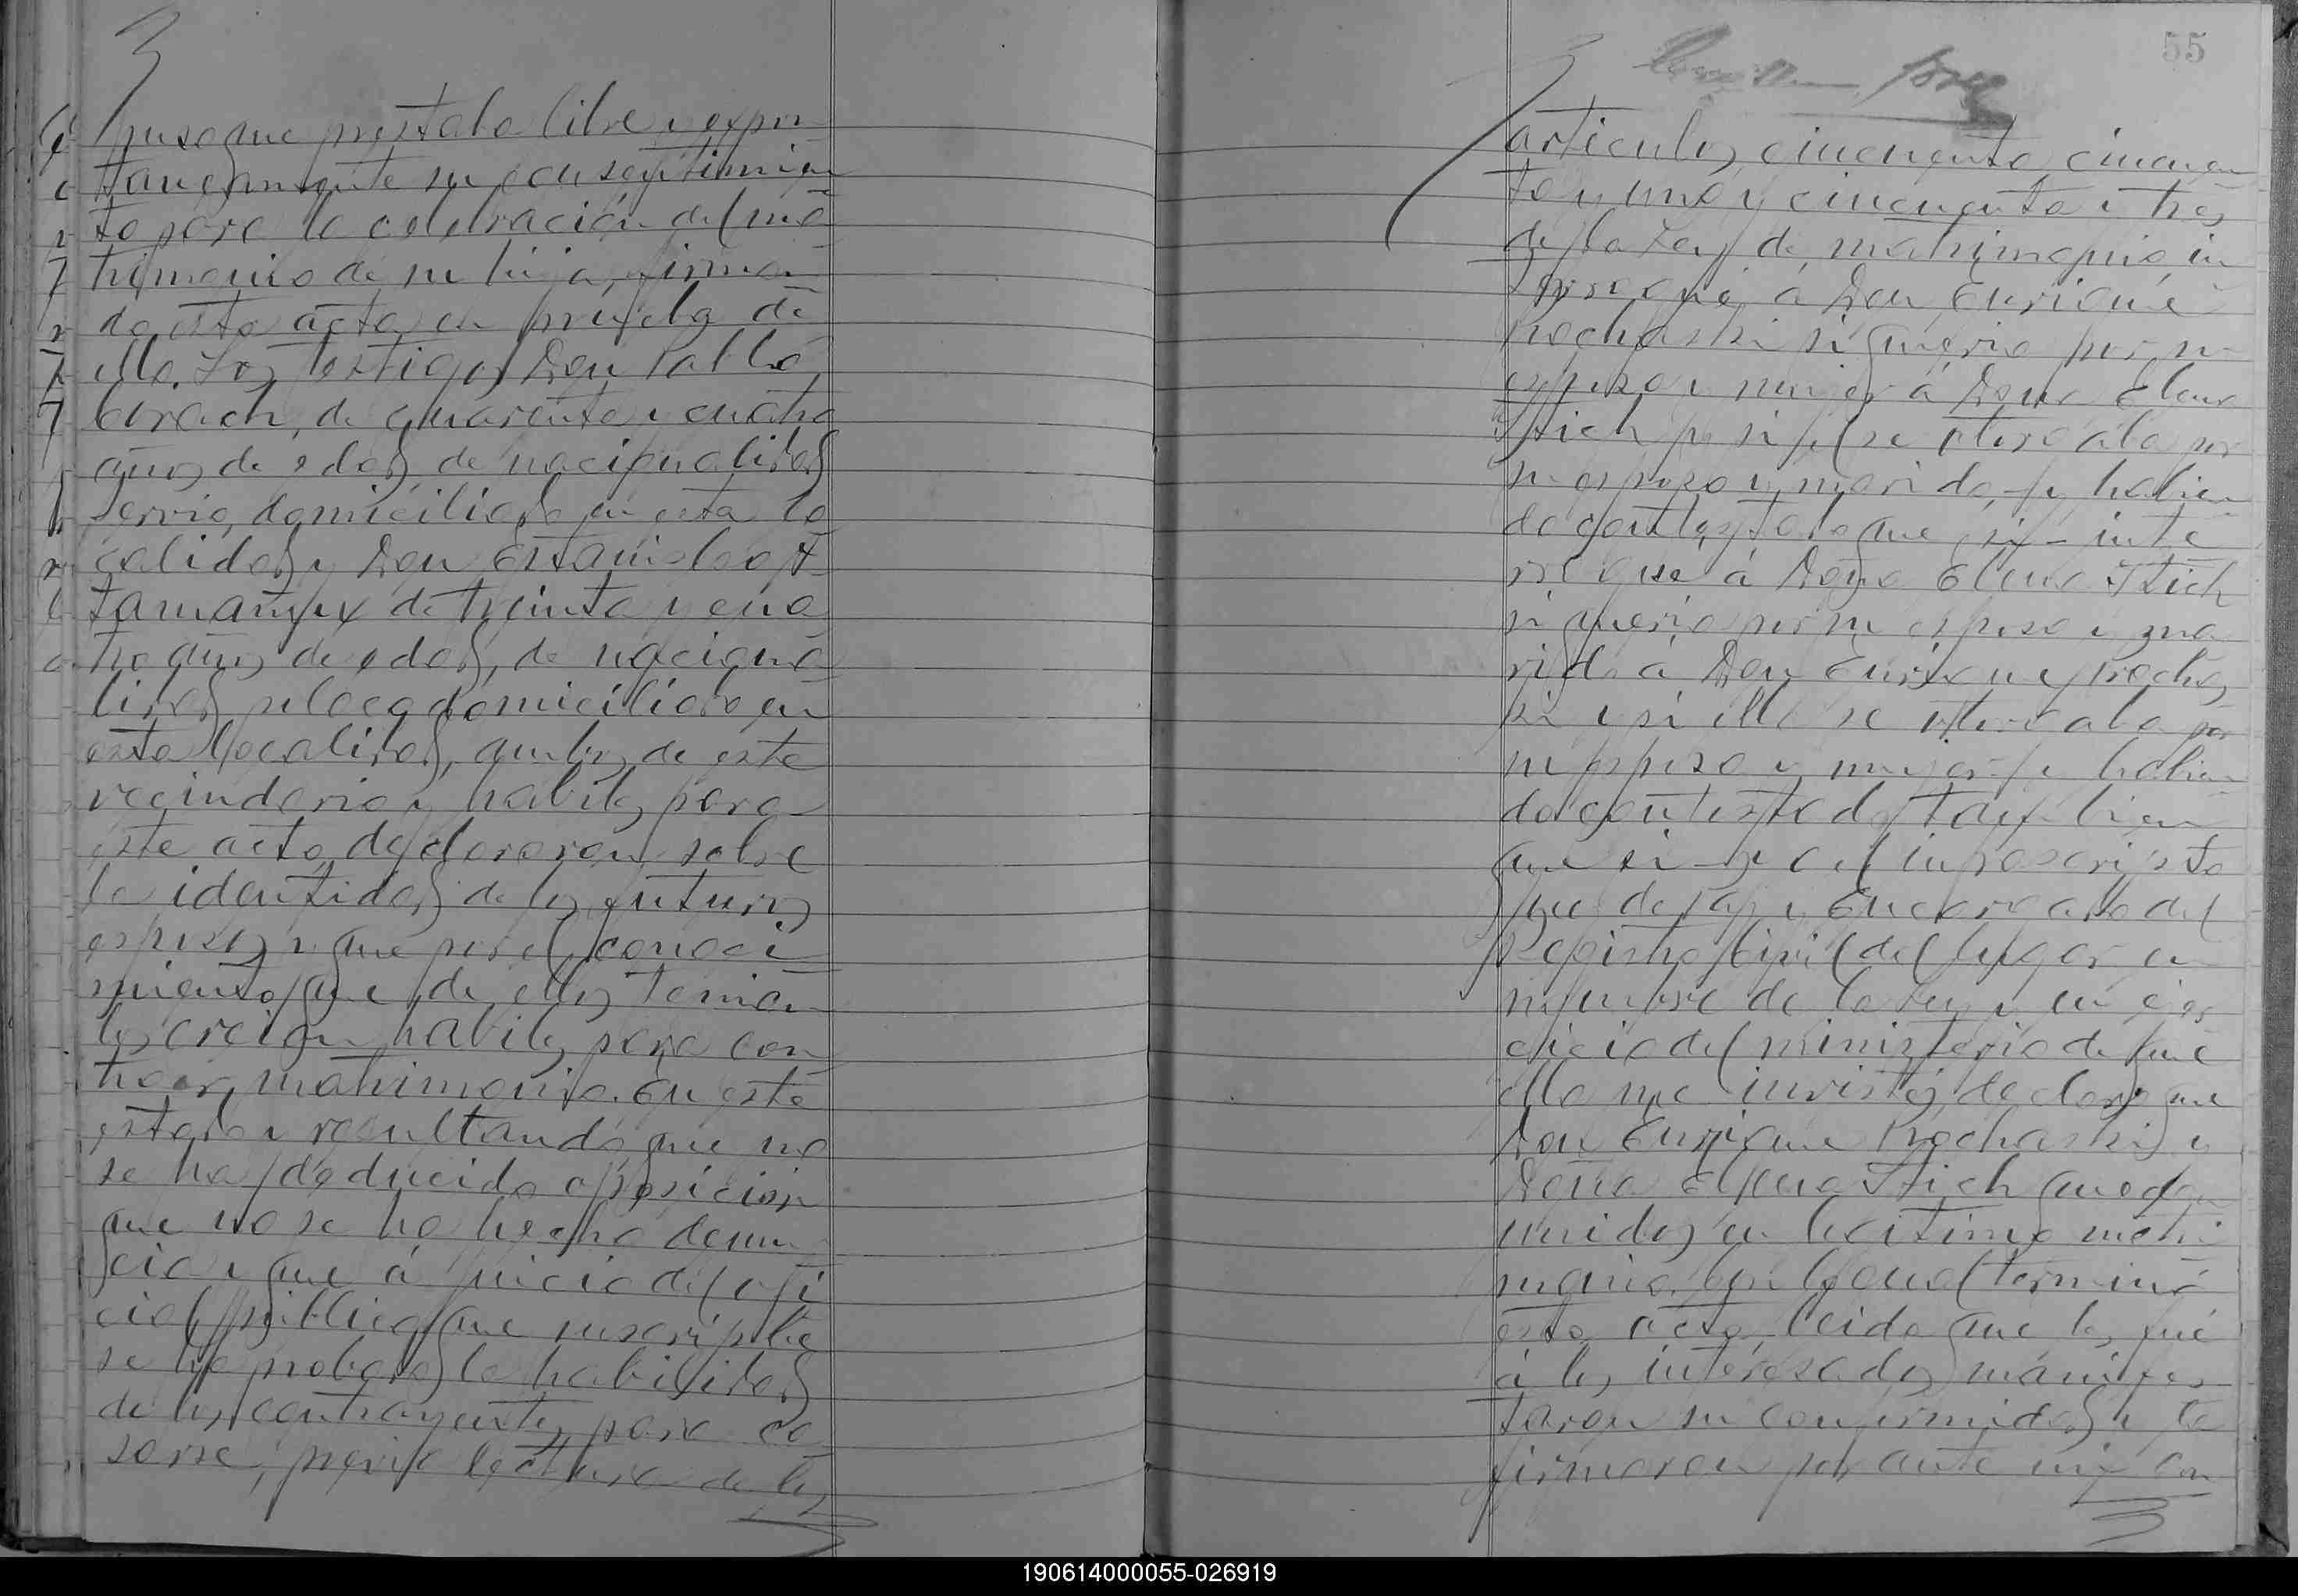 puso que prestaba libre y expon
taneamente su consentimien
to para la celebración del ma
trimonio de su hija, firman
do esta acta en prueba de
ello. Los testigos Don Pablo
de cuarenta y cuatro
años de edad, de nacionalidad
servia, domiciliado en esta lo
calidad y Don Estanislao
de treinta y cua
tro años de edad, de naciona
lidad polaca domiciliado en
esta localidad, ambos de este
vecindario y habiles para
este acto, declararon sobre
la identidad de los futuros
esposos y que por el conoci
miento que de ellos tenian
los creian habiles para con
traer matrimonio. En este
estado y resultando que no
se ha deducido oposicion
que no se ha hecho denun
cia y que á juicio del ofi
cial publico que suscribe
se ha probado la habilidad
de los contrayentes para ca
sarse, previa lectura de los
55
articulos cincuenta, cincuen
ta y uno y cincuenta y tres
de la Ley de matrimonio in
terrogué á Don Enrique
Prochaski si queria por su
esposa y mujer á Doña Elena
Stich y si él se otorgaba por
su esposo y marido, y habien
do contestado que si - inte
rrogué á Doña Elena Stich
si queria por su esposo y ma
rido á Don Enrique Prochas
ki y si ella se otorgaba por
su esposa y mujer y habien
do contestado tambien
que si - yo el infrascripto
Juez de Paz y Encargado del
Registro Civil del lugar en
nombre de la Ley y en ejer
cicio del ministerio de que
ella me inviste, declaro que
Don Enrique Prochaski y
Doña Elena Stich quedan
unidos en legitimo matri
monio. Con lo cual terminó
este acto, leida que les fué
á los interesados manifes
taron su conformidad y la
firmaron por ante mi con
190614000055-026919